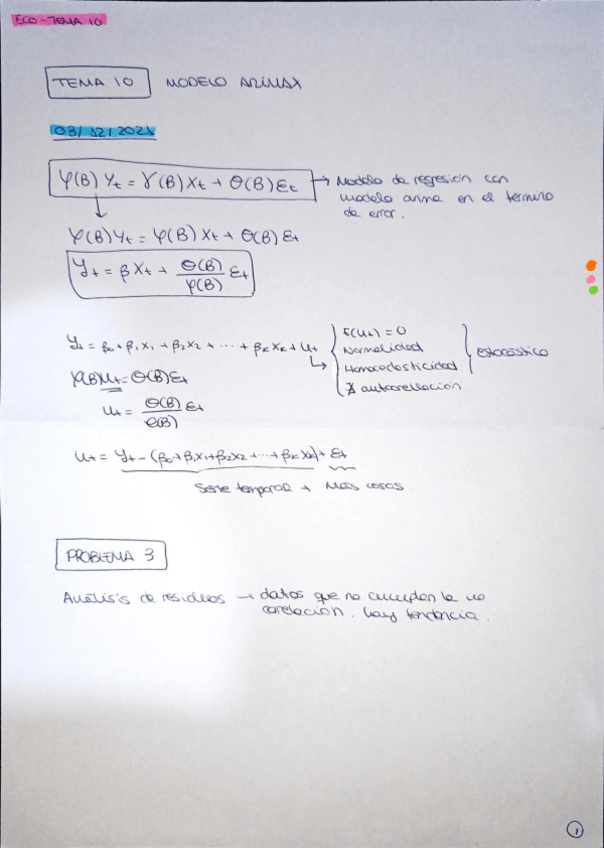 ECO - TEMA 10
TEMA 10 MODELO ARIMAX
03/12/2021
φ(B) Yt = γ(B) Xt + Θ(B) εt → Modelo de regresión con
modelo arma en el término
de error.
φ(B) Yt = φ(B) Xt + Θ(B) εt
Yt = β Xt + Θ(B)/φ(B) εt
Yt = β0 + β1X1 + β2X2 + ... + βkXk + Ut
E(Ut) = 0
Normalidad
Homocedasticidad
∄ autocorrelación
estocástico
φ(B) Ut = Θ(B) εt
Ut = Θ(B)/φ(B) εt
Ut = Yt - (β0 + β1X1 + β2X2 + ... + βkXk) + εt
Serie temporal + Más cosas
PROBLEMA 3
Análisis de residuos → datos que no cumplen la no
correlación. hay tendencia.
1